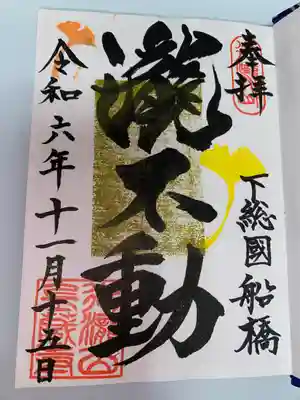 奉拝
下總國船橋
瀧不動
令和六年十一月十五日